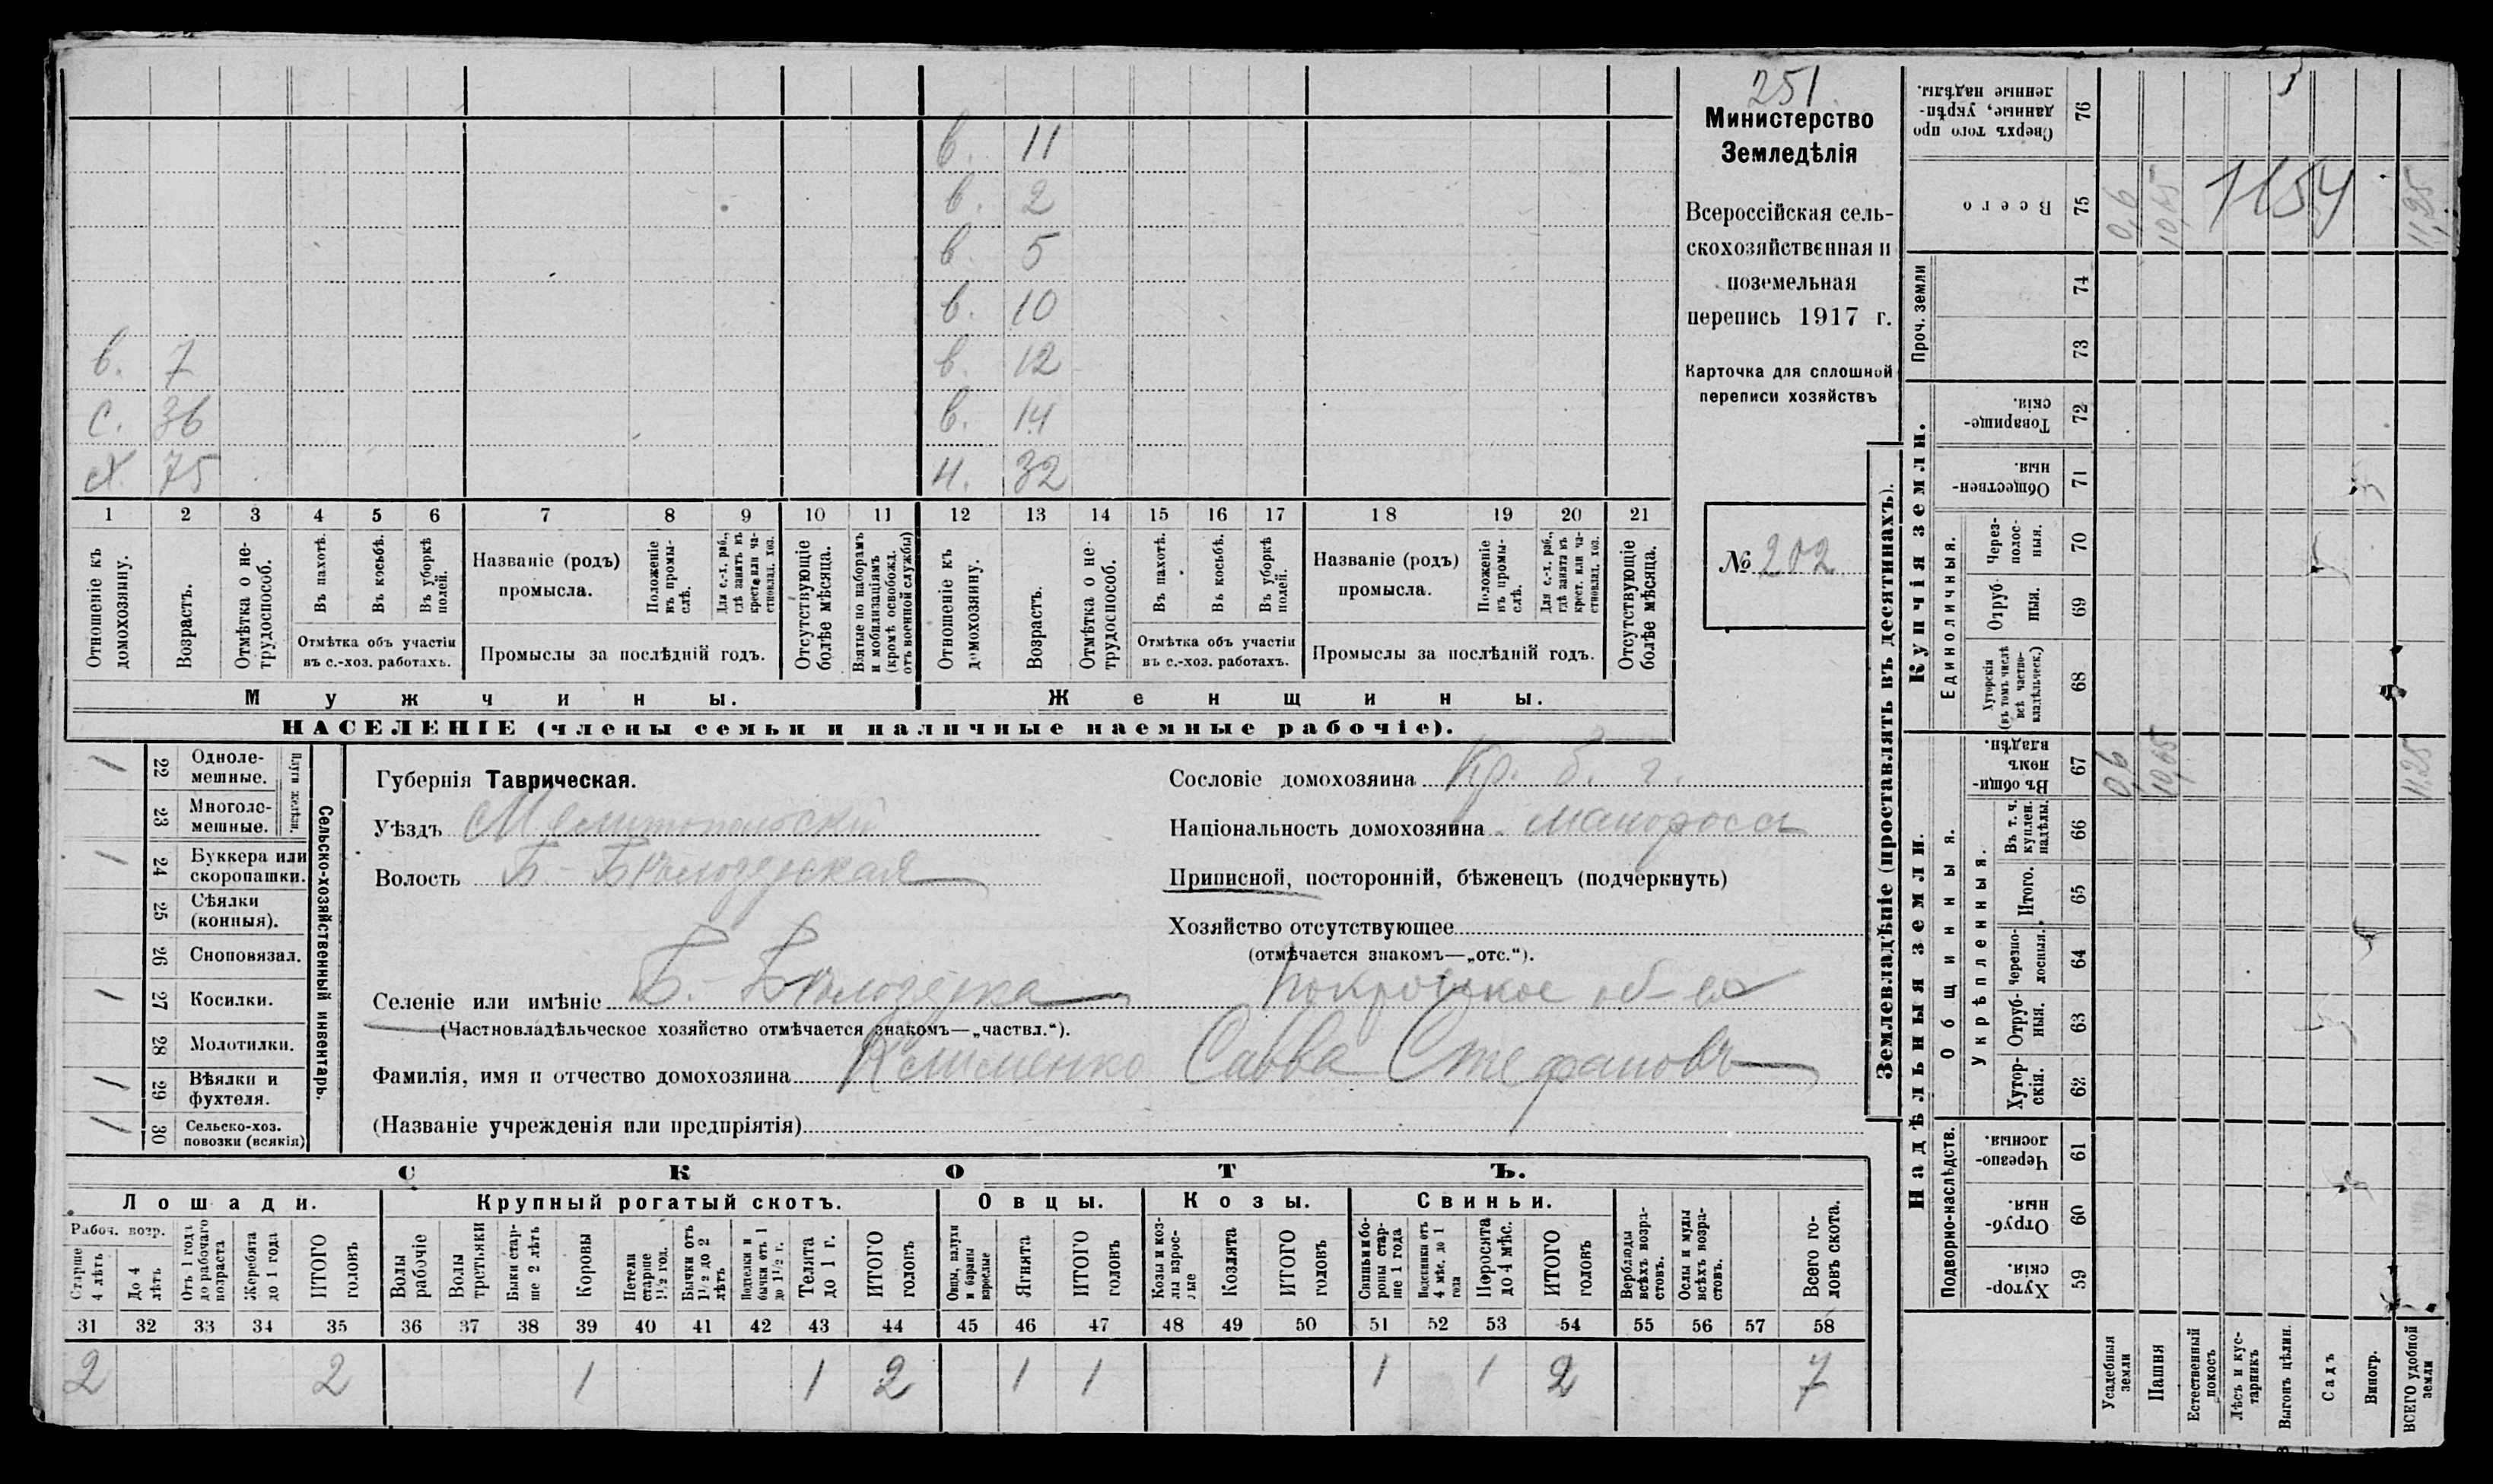 251
Министерство
Земледѣлія
Всероссійская сель-
скохозяйственная и
поземельная
перепись 1917 г.
Карточка для сплошной
переписи хозяйствъ
№ 202
в. 11
в. 2
в. 5
в. 10
в. 7 в. 12
с. 36 в. 14
Х. 75 н. 32
1 2 3 4 5 6 7 8 9 10 11 12 13 14 15 16 17 18 19 20 21
Отношеніе къ домохозяину.
Возрастъ.
Отмѣтка о не-трудоспособ.
Въ пахотѣ.
Въ косьбѣ.
Въ уборкѣ полей.
Отмѣтка объ участіи
въ с.-хоз. работахъ.
Названіе (родъ)
промысла.
Положеніе въ промы-слѣ.
Для с.-х. раб., гдѣ занятъ въ крест. или ча-стновлад. хоз.
Промыслы за послѣдній годъ.
Отсутствующіе болѣе мѣсяца.
Взятые по наборамъ и мобилизаціямъ (кромѣ освобожд. отъ военной службы)
Отношеніе къ домохозяину.
Возрастъ.
Отмѣтка о не-трудоспособ.
Въ пахотѣ.
Въ косьбѣ.
Въ уборкѣ полей.
Отмѣтка объ участіи
въ с.-хоз. работахъ.
Названіе (родъ)
промысла.
Положеніе въ промы-слѣ.
Для с.-х. раб., гдѣ занятъ въ крест. или ча-стновлад. хоз.
Промыслы за послѣдній годъ.
Отсутствующіе болѣе мѣсяца.
Мужчины. Женщины.
НАСЕЛЕНІЕ (члены семьи и наличные наемные рабочіе).
Сельско-хозяйственный инвентарь.
Плуги желѣзн.
1 22 Одноле-мешные.
23 Многоле-мешные.
1 24 Буккера или скоропашки.
25 Сѣялки (конныя).
26 Сноповязал.
1 27 Косилки.
28 Молотилки.
1 29 Вѣялки и фухтеля.
1 30 Сельско-хоз. повозки (всякія)
Губернія Таврическая.
Уѣздъ Мелитопольскій
Волость Б.-Бѣлозерская
Селеніе или имѣніе Б.-Бѣлозерка Покровское об-во
(Частновладѣльческое хозяйство отмѣчается знакомъ—„частвл.“).
Фамилія, имя и отчество домохозяина Клименко Савва Стефановъ
(Названіе учрежденія или предпріятія)
Сословіе домохозяина Кр. б. г.
Національность домохозяина малоросс
Приписной, посторонній, бѣженецъ (подчеркнуть)
Хозяйство отсутствующее
(отмѣчается знакомъ—„отс.“).
СКОТЪ.
Лошади. Крупный рогатый скотъ. Овцы. Козы. Свиньи.
Рабоч. возр.
Старше 4 лѣтъ
До 4 лѣтъ
Отъ 1 года до рабочаго возраста
Жеребята до 1 года
ИТОГО головъ
Волы рабочіе
Волы третьяки
Быки стар-ше 2 лѣтъ
Коровы
Нетели старше 1½ год.
Бычки отъ 1½ до 2 лѣтъ
Подтелки и бычки отъ 1 до 1½ г.
Телята до 1 г.
ИТОГО головъ
Овцы, валухи и бараны взрослые
Ягнята
ИТОГО головъ
Козы и коз-лы взрос-лые
Козлята
ИТОГО головъ
Свиньи и бо-ровы стар-ше 1 года
Подсвинки отъ 4 мѣс. до 1 года
Поросята до 4 мѣс.
ИТОГО головъ
Верблюды всѣхъ возра-стовъ.
Ослы и мулы всѣхъ возра-стовъ.
Всего го-ловъ скота.
31 32 33 34 35 36 37 38 39 40 41 42 43 44 45 46 47 48 49 50 51 52 53 54 55 56 57 58
2 2 1 1 2 1 1 1 1 2 7
Землевладѣніе (проставлять въ десятинахъ).
Надѣльныя земли. Купчія земли. Проч. земли
Подворно-наслѣдств.
Общинныя.
Укрѣпленныя.
Единоличныя.
Хутор-скія. 59
Отруб-ныя. 60
Черезпо-лосныя. 61
Хутор-скія. 62
Отруб-ныя. 63
Черезпо-лосныя. 64
Итого. 65
Въ т. ч. куплен. надѣлы. 66
Въ общи-нномъ владѣн. 67 0,6 10,65 11,25
Хуторскія (въ томъ числѣ всѣ частно-владѣльческ.) 68
Отруб-ныя. 69
Через-полос-ныя. 70
Обществен-ныя. 71
Товарище-скія. 72
73
74
Всего 75 0,6 10,65 1154 11,25
Сверхъ того про-данные, укрѣп-ленные надѣлы. 76
Усадебныя земли
Пашня
Естественный покосъ
Лѣсъ и кус-тарникъ
Выгонъ цѣлин.
Садъ
Виногр.
ВСЕГО удобной земли